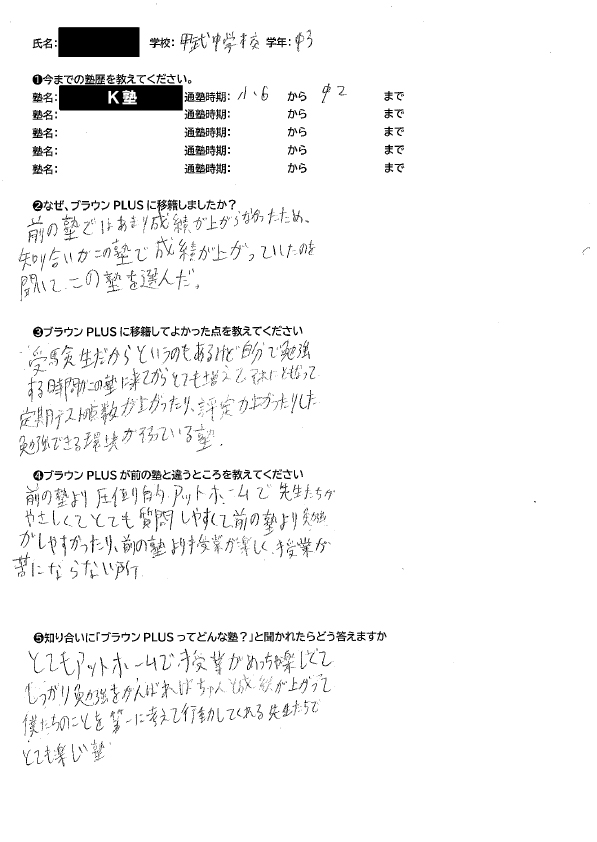 氏名: 学校: 甲武中学校 学年: 中3
❶今までの塾歴を教えてください。
塾名: K塾 通塾時期: 小6 から 中2 まで
塾名: 通塾時期: から まで
塾名: 通塾時期: から まで
塾名: 通塾時期: から まで
塾名: 通塾時期: から まで
❷なぜ、ブラウンPLUSに移籍しましたか？
前の塾ではあまり成績が上がらなかったため、
知り合いがこの塾で成績が上がっていたのを
聞いて、この塾を選んだ。
❸ブラウンPLUSに移籍してよかった点を教えてください
受験生だからというのもあるけど自分で勉強
する時間がこの塾に来てからとても増えて、それによって
定期テストの点数が上がったり、評定が上がったりした
勉強できる環境が整っている塾.
❹ブラウンPLUSが前の塾と違うところを教えてください
前の塾より圧倒的アットホームで先生たちが
やさしくてとても質問しやすくて前の塾より勉強
がしやすかったり、前の塾より授業が楽しく、授業が
苦にならない所
❺知り合いに「ブラウンPLUSってどんな塾？」と聞かれたらどう答えますか
とてもアットホームで授業がめっちゃ楽しくて
しっかり勉強をがんばればちゃんと成績が上がって
僕たちのことを第一に考えて行動してくれる先生たちで
とても楽しい塾